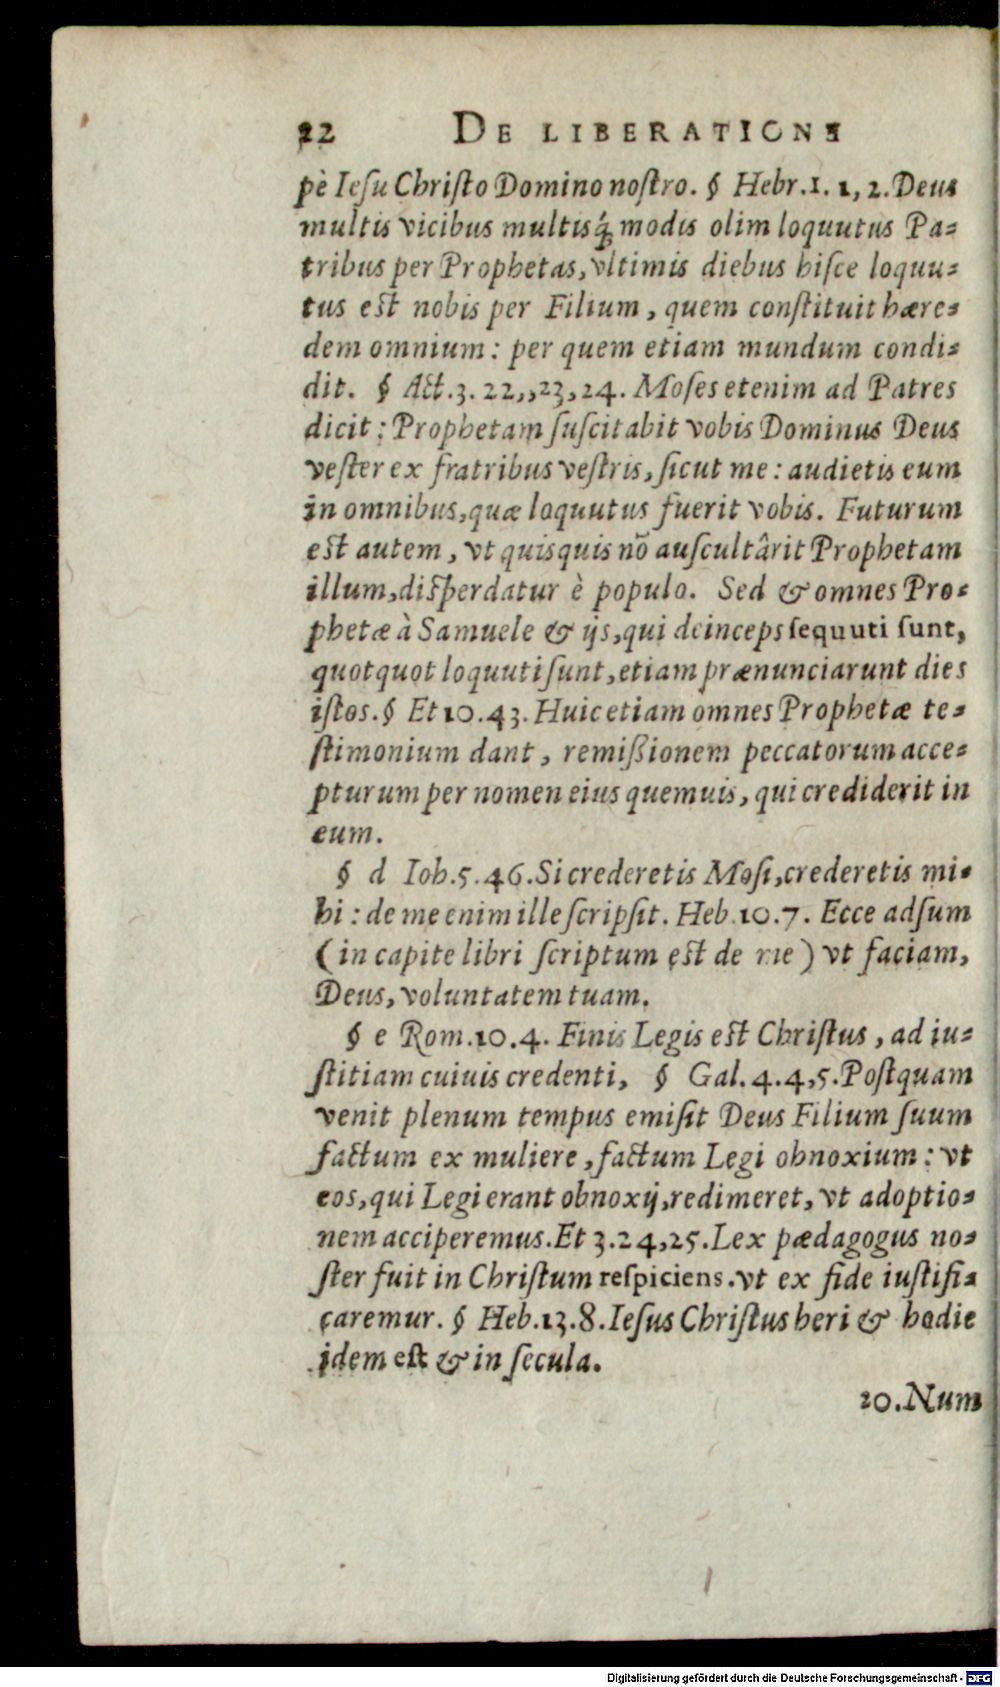 22 DE LIBERATIONE
pè Iesu Christo Domino nostro. § Hebr.1. 1, 2. Deus
multis vicibus multisq́; modis olim loquutus Pa-
tribus per Prophetas, vltimis diebus hisce loquu-
tus est nobis per Filium, quem constituit hære-
dem omnium: per quem etiam mundum condi-
dit. § Act.3. 22,,23,24. Moses etenim ad Patres
dicit: Prophetam suscitabit vobis Dominus Deus
vester ex fratribus vestris, sicut me: audietis eum
in omnibus, quæ loquutus fuerit vobis. Futurum
est autem, vt quisquis nõ auscultârit Prophetam
illum, disperdatur è populo. Sed & omnes Pro-
phetæ à Samuele & ijs, qui deinceps sequuti sunt,
quotquot loquuti sunt, etiam prænunciarunt dies
istos. § Et 10.43. Huic etiam omnes Prophetæ te-
stimonium dant, remißionem peccatorum acce-
pturum per nomen eius quemuis, qui crediderit in
eum.
§ d Ioh.5.46. Si crederetis Mosi, crederetis mi-
hi: de me enim ille scripsit. Heb.10.7. Ecce adsum
(in capite libri scriptum est de me) vt faciam,
Deus, voluntatem tuam.
§ e Rom.10.4. Finis Legis est Christus, ad iu-
stitiam cuiuis credenti, § Gal.4.4,5. Postquam
venit plenum tempus emisit Deus Filium suum
factum ex muliere, factum Legi obnoxium: vt
eos, qui Legi erant obnoxij, redimeret, vt adoptio-
nem acciperemus. Et 3.24,25. Lex pædagogus no-
ster fuit in Christum respiciens. vt ex fide iustifi-
caremur. § Heb.13.8. Iesus Christus heri & hodie
idem est & in secula.
20. Num
Digitalisierung gefördert durch die Deutsche Forschungsgemeinschaft - DFG